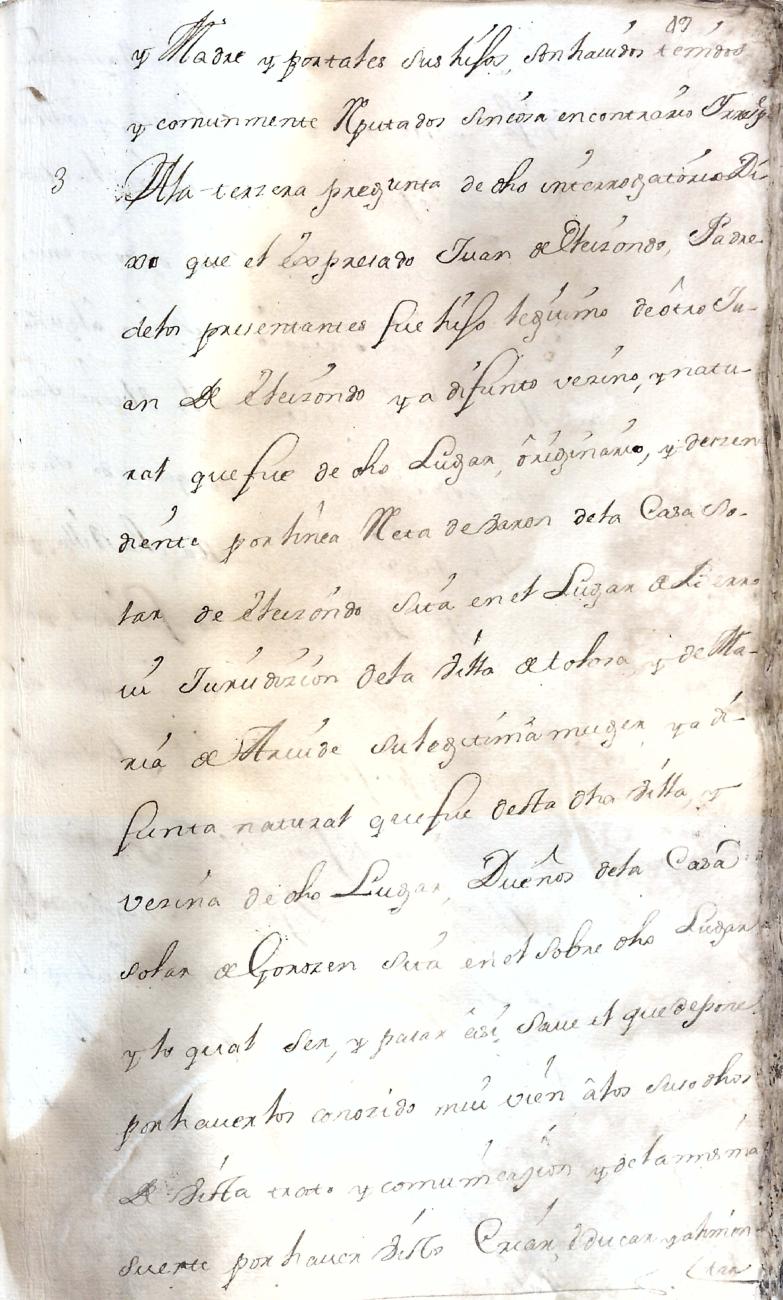 y Madre y por tales sus hijos, son hauidos tenidos
y comunmente Reputados sin cosa en contrario
3 A la terzera pregunta de dho interrogatorio Di
xo que el expresado Juan de Eleizondo, Padre
de los presentantes fue hijo legitimo de otro Ju-
an de Eleizondo ya difunto vezino, y natu-
ral que fue de dho Lugar, originario, y deszen
diente por linea Recta de varon de la Casa So-
lar de Eleizondo sita en el Lugar de
ui Jurisdizion de la Villa de tolosa, y de Ma-
ria de su legitima muger, ya di-
funta natural que fue desta dha Villa, y
vezina de dho Lugar, Dueños de la Casa
solar de Gorozen sita en el sobre dho Lugar
y lo qual ser, y pasar asi, saue el que depone
por hauerlos conozido mui vien a los suso dhos
de Vista trato y comunicazion y de la misma
suerte por hauer Visto Criar, educar, y alimen
tar